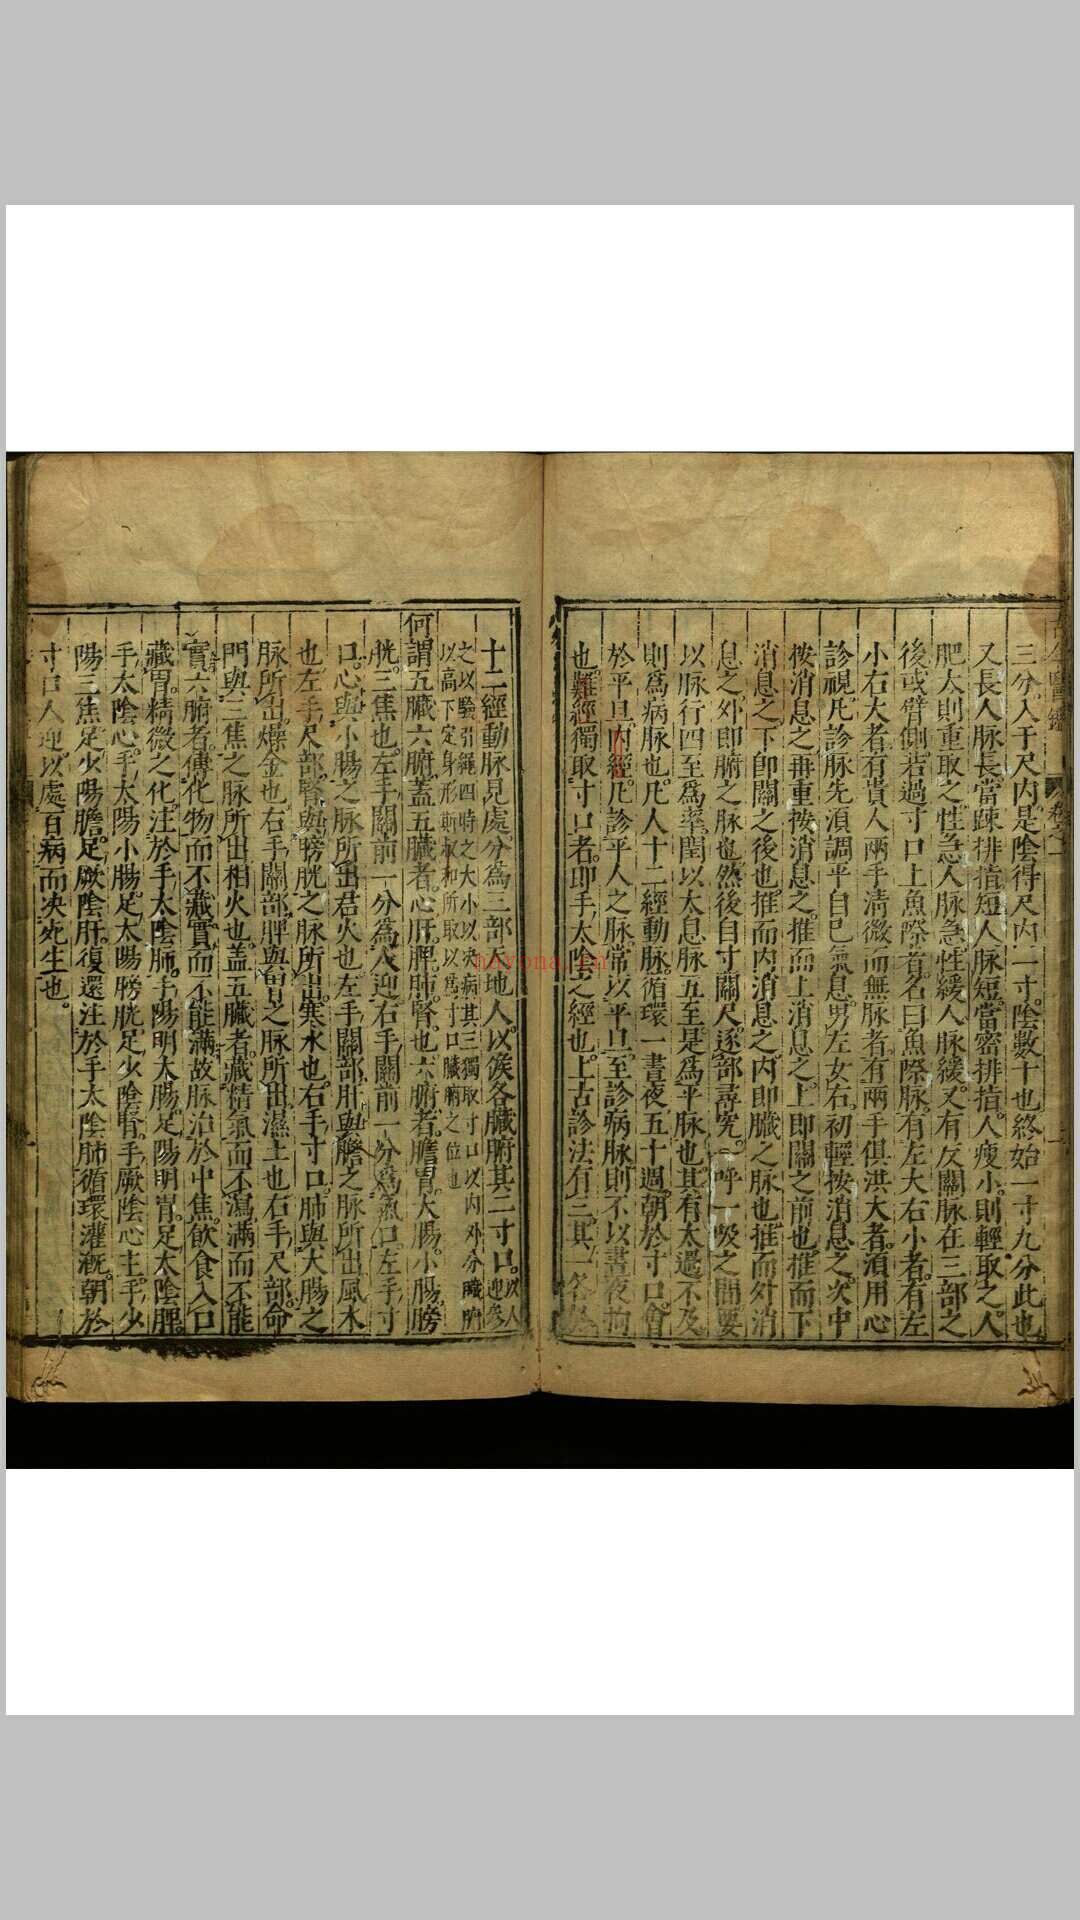 三分入于尺内是陰得尺内一寸陰數十也終始一寸九分此也
又長人脉長當疎排指短人脉短當密排指人瘦小則輕取之人
肥大則重取之性急人脉急性緩人脉緩又有反關脉在三部之
後或臂側若過寸口上魚際者名曰魚際脉有左大右小者有左
小右大者有貴人兩手清微而無脉者有兩手俱洪大者須用心
診視凡診脉先須調平自己氣息男左女右初輕按消息之次中
按消息之再重按消息之推而上消息之上即關之前也推而下
消息之下即關之後也推而内消息之内即臟之脉也推而外消
息之外即腑之脉也然後自寸關尺逐部尋究一呼一吸之間要
以脉行四至爲率閏以太息脉五至是爲平脉也其有太過不及
則爲病脉也凡人十二經動脉循環一晝夜五十週朝於寸口會
於平旦内經凡診平人之脉常以平旦至診病脉則不以晝夜拘
也難經獨取寸口者即手太陰之經也上古診法有三其一各於
十二經動脉見處分爲三部天地人以候各臟腑其二寸口以人迎參
之以驗引繩四時之大小以决病其三獨取寸口以内外分臟腑
以高下定身形斯叔和所取以爲寸口臟腑之位也
何謂五臟六腑蓋五臟者心肝脾肺腎也六腑者膽胃大腸小腸膀
胱三焦也左手關前一分爲人迎右手關前一分爲氣口左手寸
口心與小腸之脉所出君火也左手關部肝與膽之脉所出風木
也左手尺部腎與膀胱之脉所出寒水也右手寸口肺與大腸之
脉所出燥金也右手關部脾與胃之脉所出濕土也右手尺部命
門與三焦之脉所出相火也蓋五臟者藏精氣而不瀉滿而不能
實六腑者傳化物而不藏實而不能滿故脉治於中焦飲食入口
藏胃精微之化注於手太陰肺手陽明大腸足陽明胃足太陰脾
手太陰心手太陽小腸足太陽膀胱足少陰腎手厥陰心主手少
陽三焦足火陽膽足厥陰肝復還注於手太陰肺循環灌溉朝於
寸口人迎以處百病而决死生也
古今醫鑑 卷之一